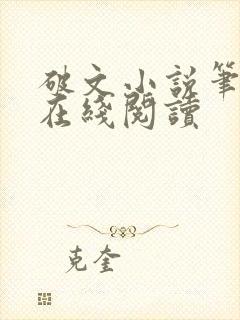 破文小说笔
在綫閱讀
克奎